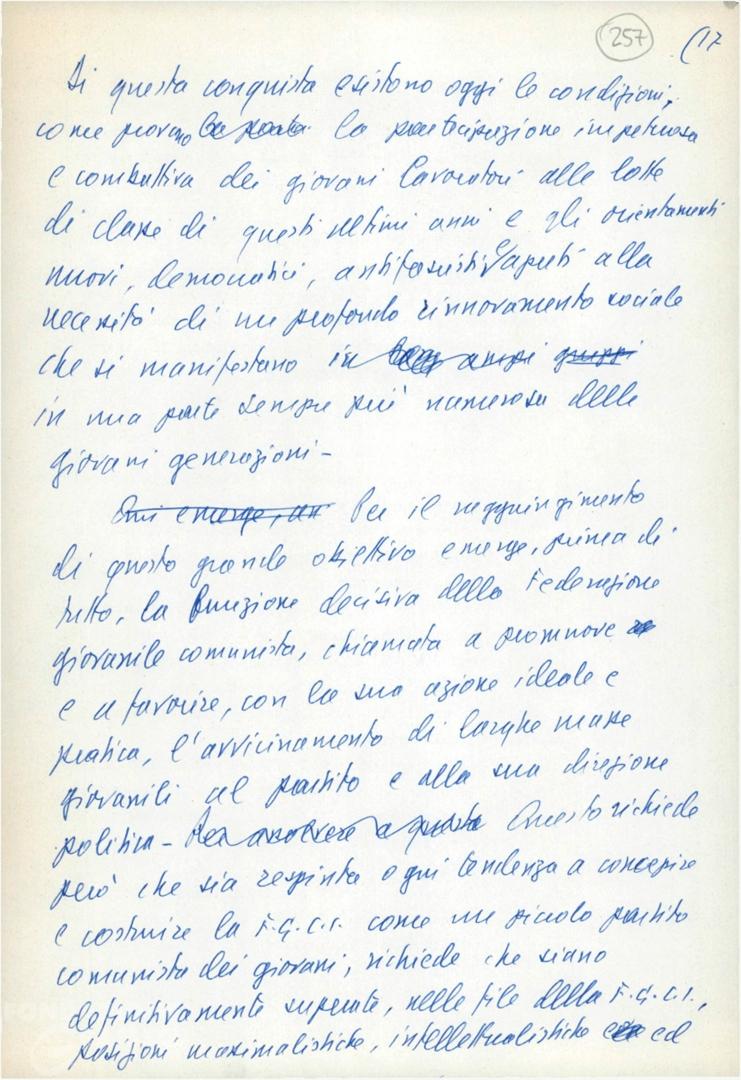 257 (17
Di questa conquista esistono oggi le condizioni,
come provano la parte la partecipazione impetuosa
e combattiva dei giovani lavoratori alle lotte
di classe di questi ultimi anni e gli orientamenti
nuovi, democratici, antifascisti, aperti alla
necessità di un profondo rinnovamento sociale
che si manifestano in ampi gruppi
in una parte sempre più numerosa delle
giovani generazioni -
Qui emerge, un Per il raggiungimento
di questo grande obiettivo emerge, prima di
tutto, la funzione decisiva della Federazione
giovanile comunista, chiamata a promuovere
e a favorire, con la sua azione ideale e
pratica, l'avvicinamento di larghe masse
giovanili al partito e alla sua direzione
politica - Per assolvere a questo Questo richiede
però che sia respinta ogni tendenza a concepire
e costruire la F.G.C.I. come un piccolo partito
comunista dei giovani, richiede che siano
definitivamente superate, nelle file della F.G.C.I.,
posizioni massimalistiche, intellettualistiche ed